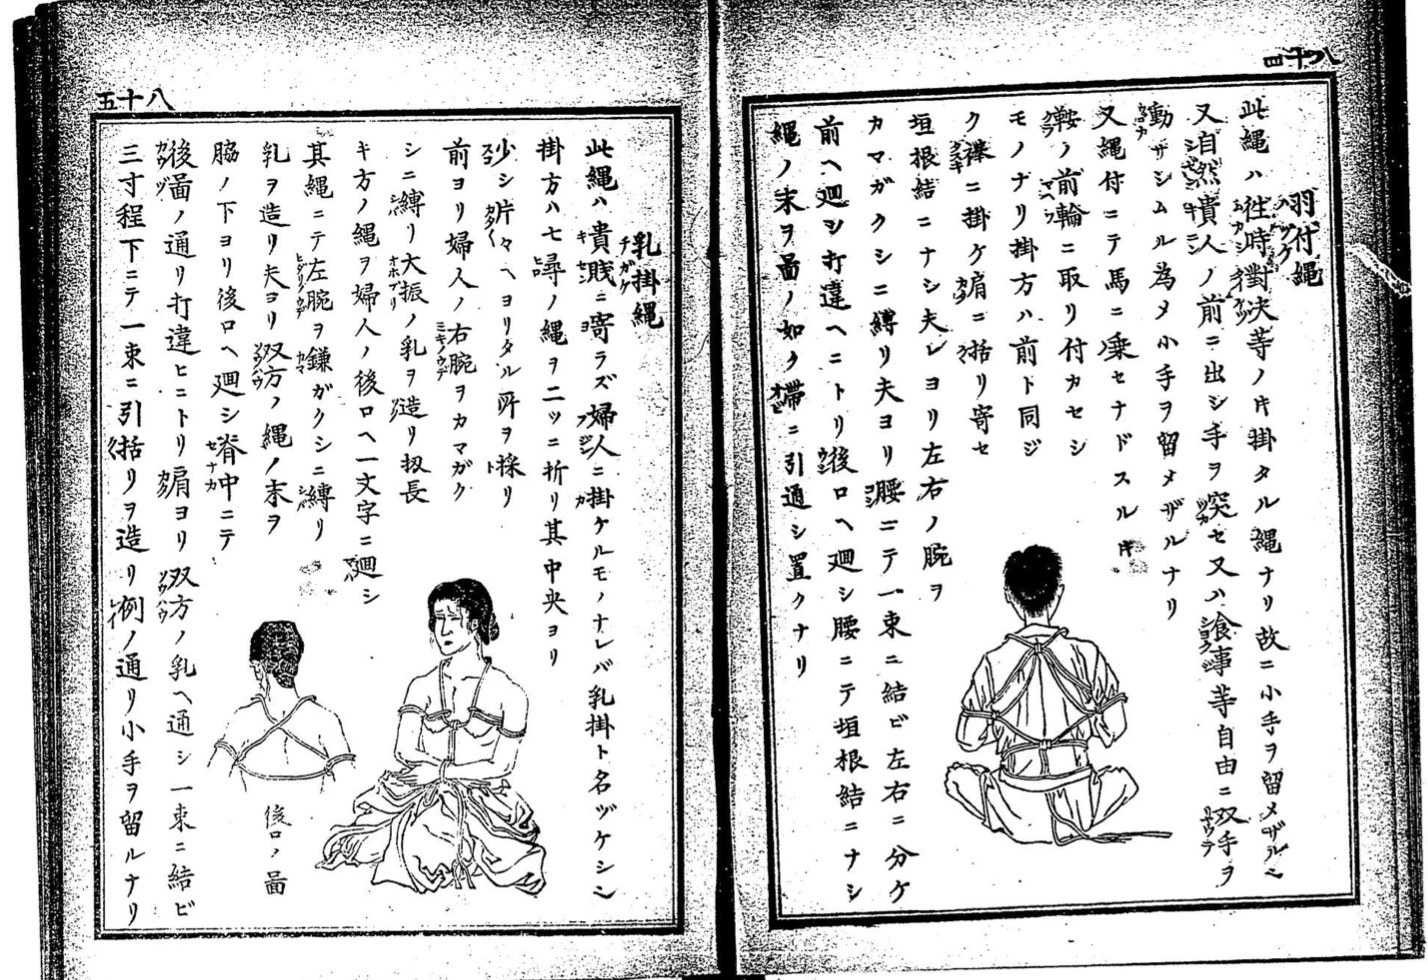 八十四
羽付縄
此縄ハ往時對决等ノ片掛タル縄ナリ故ニ小手ヲ留メザルハ
又自然貴人ノ前ニ出シ手ヲ突セ又ハ飡事等自由ニ双手ヲ
動ザシムル為メ小手ヲ留メザルナリ
又縄付ニテ馬ニ乗セナドスル片
鞍ノ前輪ニ取リ付カセシ
モノナリ掛方ハ前ト同ジ
ク襷ニ掛ケ肩ニ括リ寄セ
垣根結ニナシ夫レヨリ左右ノ腕ヲ
カマガクシニ縛リ夫ヨリ腰ニテ一束ニ結ビ左右ニ分ケ
前ヘ廻シ打違ヘニトリ後ロヘ廻シ腰ニテ垣根結ニナシ
縄ノ末ヲ啚ノ如ク帶ニ引通シ置クナリ
八十五
乳掛縄
此縄ハ貴賎ニ寄ラズ婦人ニ掛ケルモノナレバ乳掛ト名ヅケシハ
掛方ハ七尋ノ縄ヲ二ッニ折リ其中央ヨリ
少シ片々ヘヨリタル所ヲ採リ
前ヨリ婦人ノ右腕ヲカマガク
シニ縛リ大振ノ乳ヲ造リ扨長
キ方ノ縄ヲ婦人ノ後ロヘ一文字ニ廻シ
其縄ニテ左腕ヲ鎌ガクシニ縛リ
乳ヲ造リ夫ヨリ双方ノ縄ノ末ヲ
脇ノ下ヨリ後ロヘ廻シ脊中ニテ
後啚ノ通リ打違ヒニトリ肩ヨリ双方ノ乳ヘ通シ一束ニ結ビ
三寸程下ニテ一束ニ引括リヲ造リ例ノ通リ小手ヲ留ルナリ
後ロノ啚